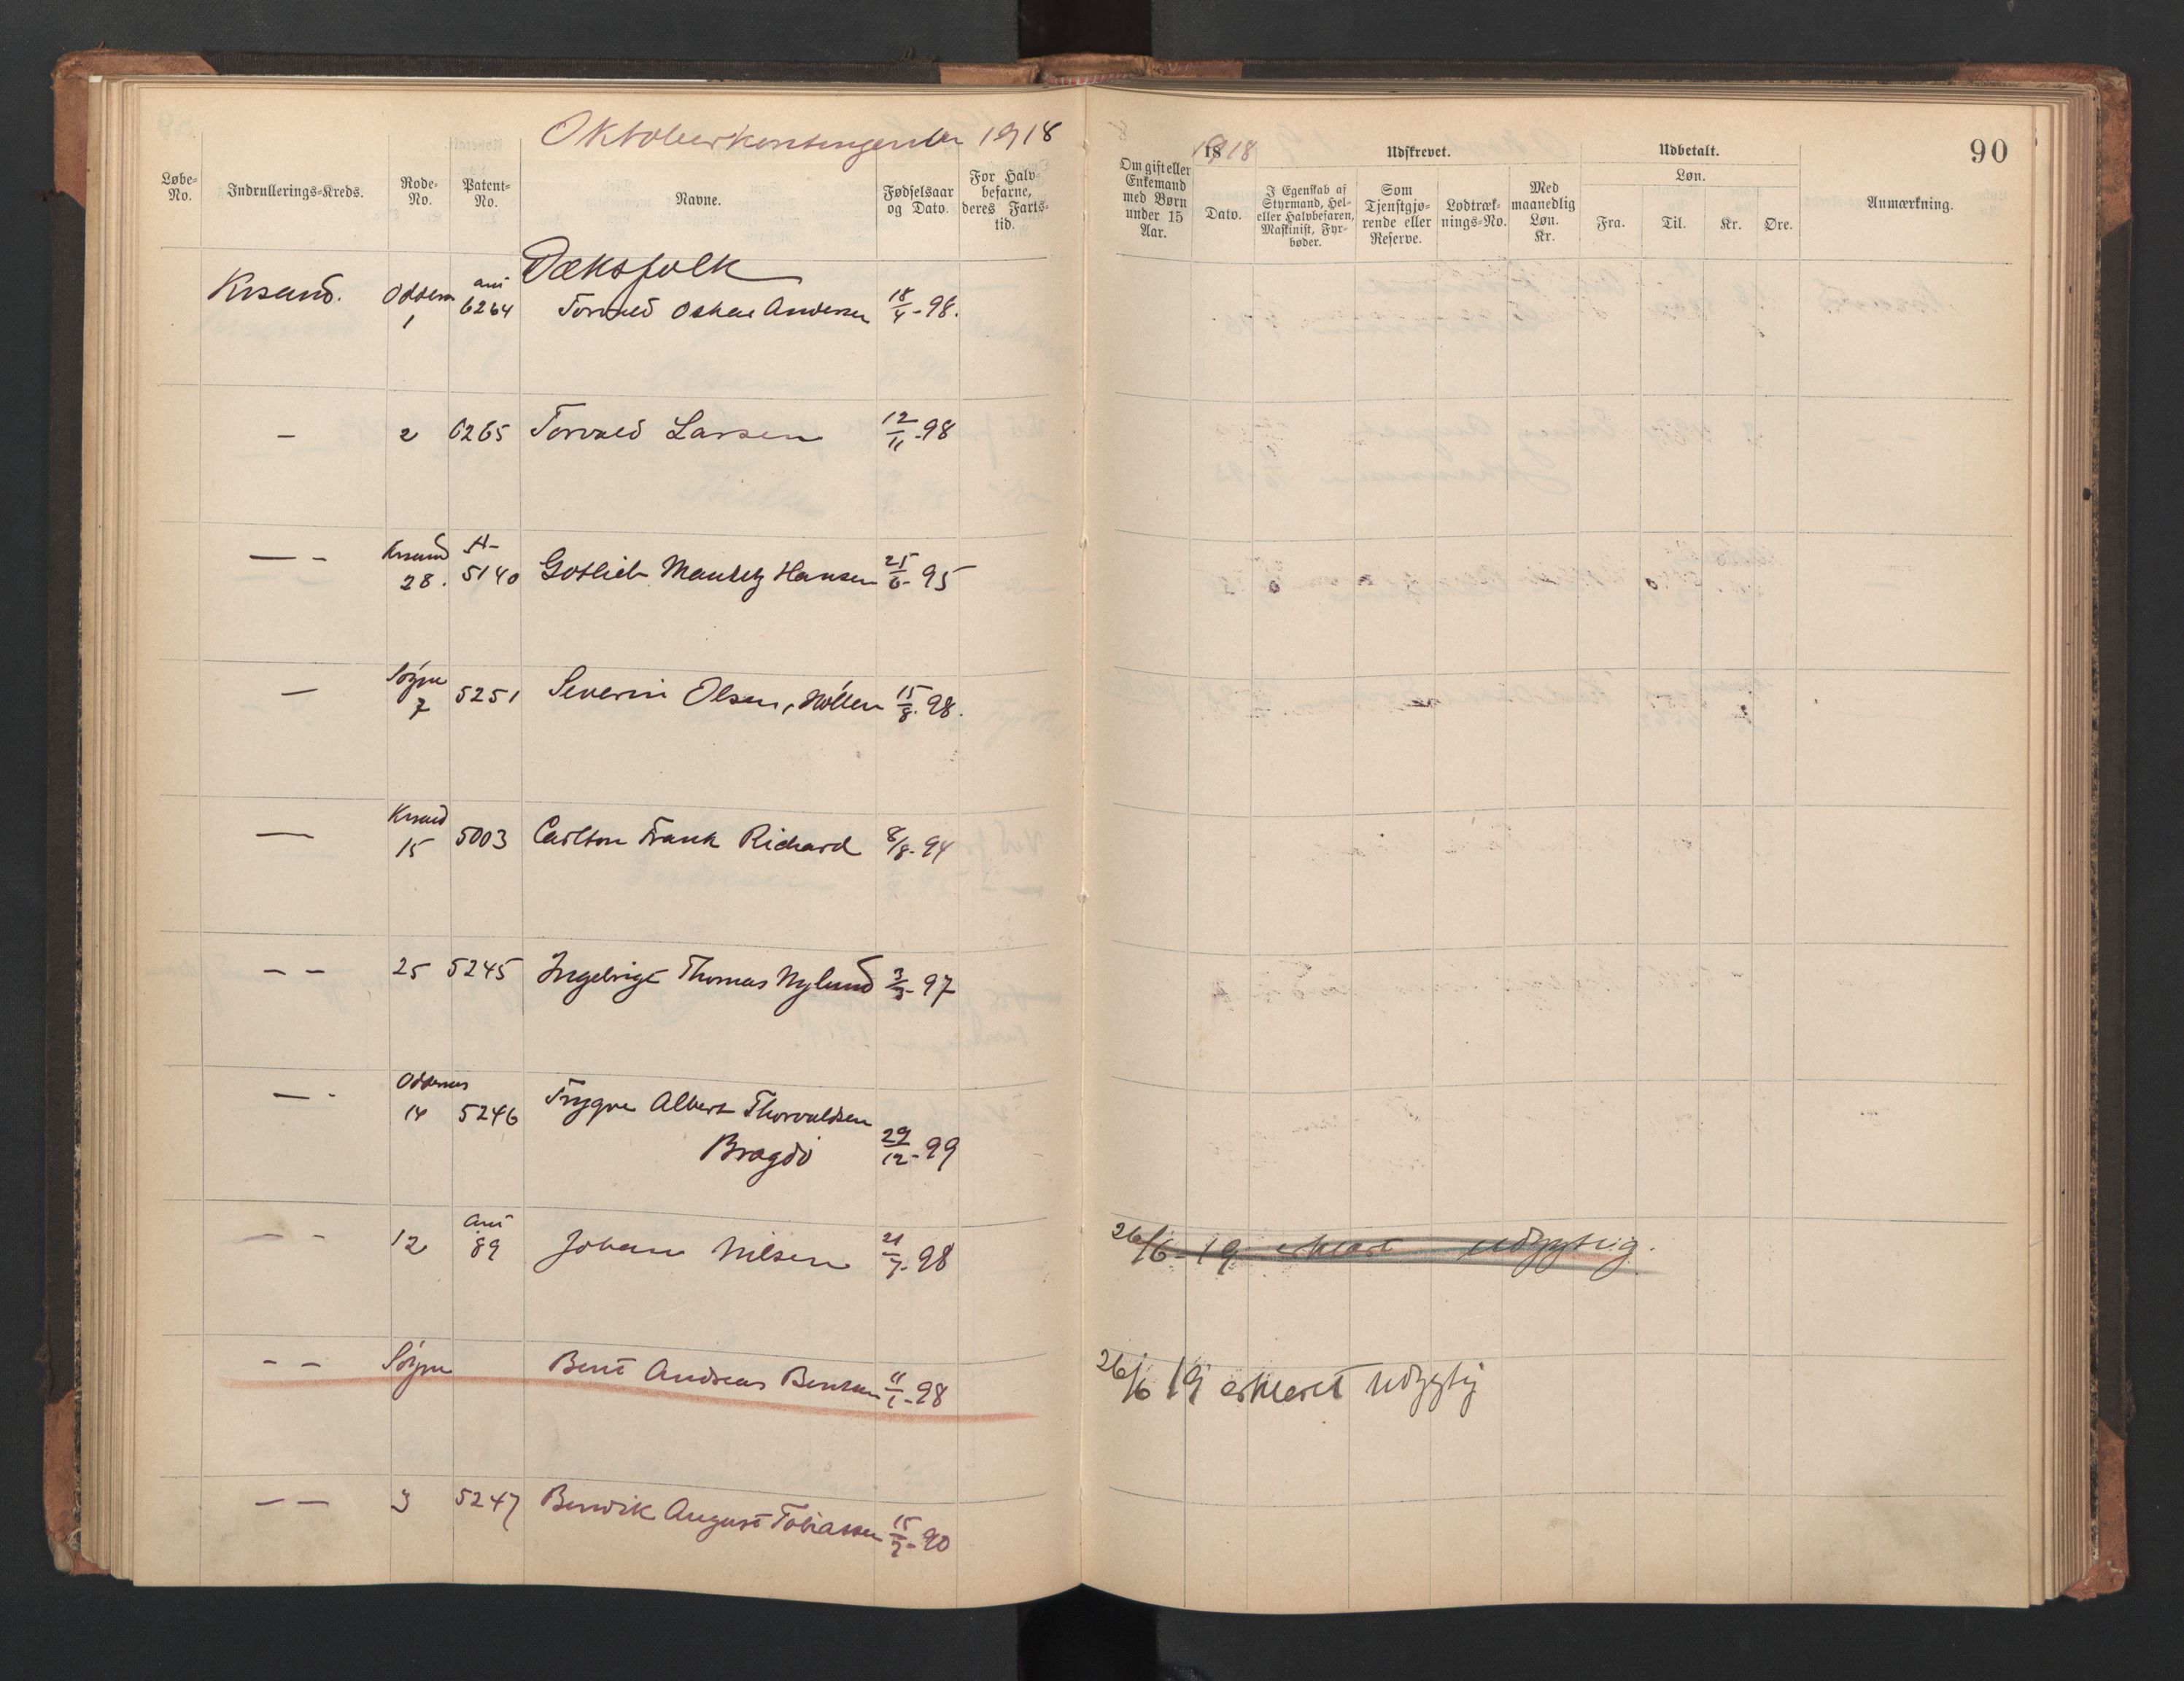 Oktoberkontingenten 1918
Løbe-No.
Indrullerings-Kreds.
Rode-No.
Patent-No.
Navne.
Fødselsaar og Dato.
For Halvbefarne, deres Fartstid.
Dæksfolk
Krsand. Oddern 1 ani 6264 Torvald Oskar Andersen 18/4-98.
- 2 6265 Torvald Larsen 12/11-98
- - Krsand 28. A- 5140 Gotlieb Hansen 25/6-95
- Søgne 7 5251 Severin Olsen, Høllen 15/8.98.
- Krsand 15 5003 Carlton Frank Richard 8/8-94
- - 25 5245 Ingebrigt Thomas Nylund 3/3-97
- - Oddernes 14 5246 Trygve Albert Thorvaldsen
Bragdø 29/12-99
- - 12 ani 89 Johan Nilsen 21/7-98
- - Søgne Bent Andreas Bentsen 11/1-98
- - 3 5247 Bendik August Tobiassen 15/7-90
90
Om gift eller Enkemand med Børn under 15 Aar.
1918
Dato.
Udskrevet.
I Egenskab af Styrmand, Hel- eller Halvbefaren, Maskinist, Fyrbøder.
Som Tjenstgjørende eller Reserve.
Lodtræknings-No.
Med maanedlig Løn. Kr.
Udbetalt.
Løn.
Fra.
Til.
Kr.
Øre.
Anmærkning.
26/6-19 erklært udygtig.
26/6 19 erklæret udygtig